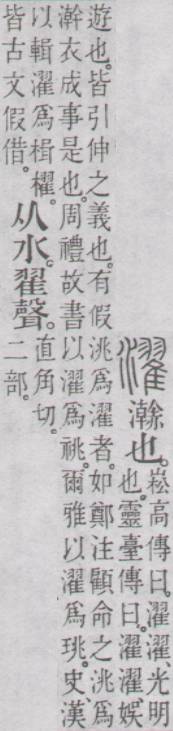 濯瀚也。崧高傳曰。濯濯、光明
也。靈臺傳曰。濯濯、娛
遊也。皆引伸之義也。有假洮爲濯者。如鄭注顧命之洮爲
澣衣成事是也。周禮故書以濯爲祧。爾雅以濯爲珧。史漢
以輯濯爲楫櫂。
皆古文假借。
从水。翟聲。
直角切。
二部。